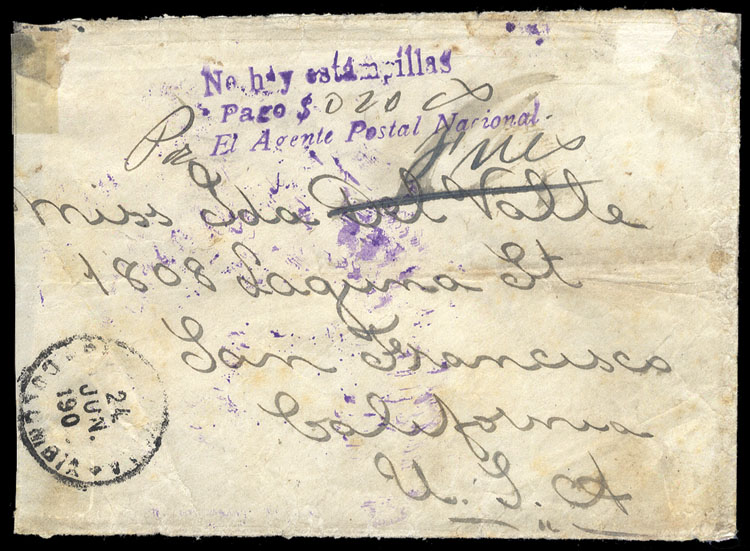 No hay estampillas
Pago $ 020
El Agente Postal Nacional.
Miss Ida Del Valle
1808 Laguna St
San Francisco
California
U. S. A
24
JUN.
190
COLOMBIA